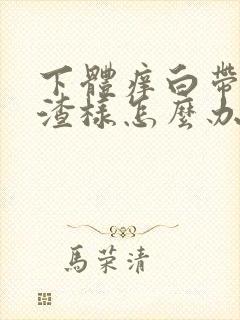 下體癢白帶
渣樣怎麼办
馬荣清